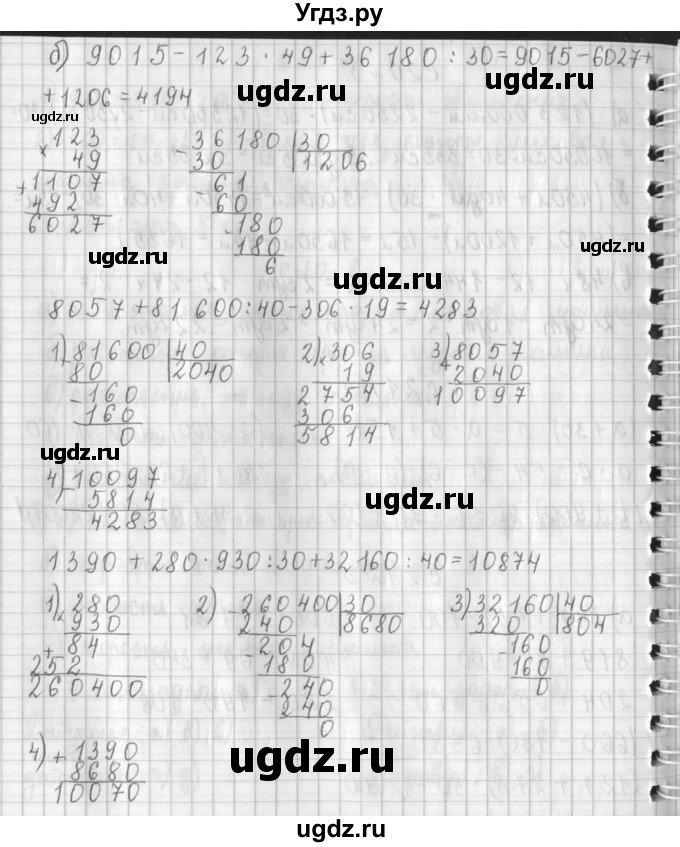 Угдз.ру
б) 9015-123·49+36 180:30=9015-6027+
+1206=4194
ugdz.ru
ugdz.ru
ugdz.ru
× 123
49
+ 1107
492
6027
- 36180 30
30 1206
- 61
60
- 180
180
6
ugdz.ru
ugdz.ru
8057+81 600:40-306·19=4283
1) 81600 40
80 2040
- 160
160
0
2) × 306
19
2754
306
5814
3) + 8057
2040
10097
ugdz.ru
ugdz.ru
4) - 10097
5814
4283
1390+280·930:30+32160:40=10874
1) × 280
930
+ 84
252
260400
2) - 260400 30
240 8680
- 204
180
- 240
240
0
3) 32160 40
320 804
- 160
160
0
4) + 1390
8680
10070
ugdz.ru
ugdz.ru